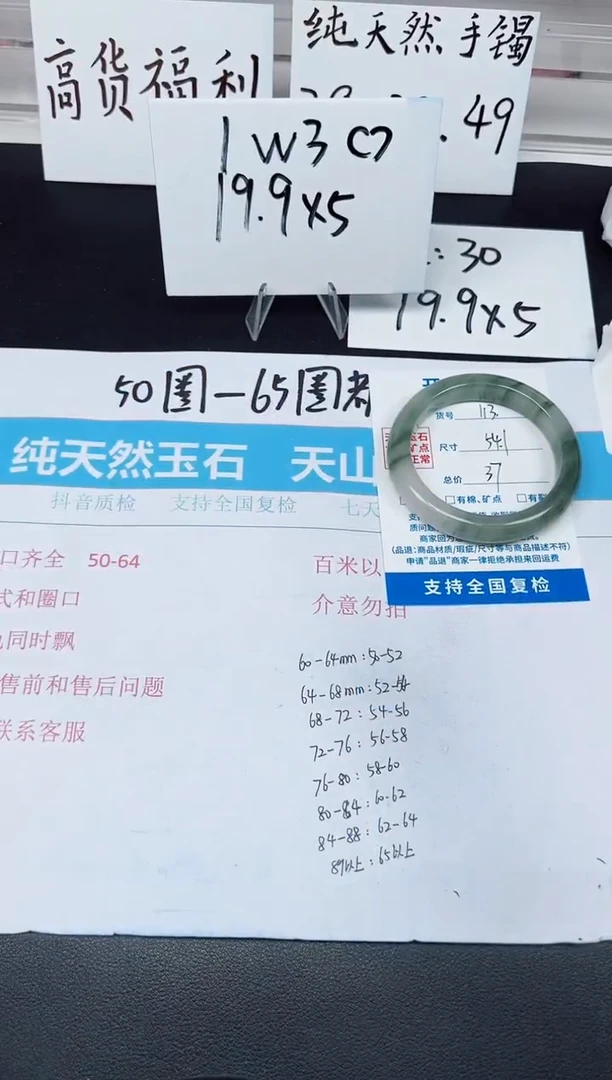 高货福利
纯天然手镯
.49
1W30
19.9x5
:30
19.9x5
50圈—65圈
纯天然玉石 天山
抖音质检 支持全国复检 七天
口齐全 50-64
式和圈口
同时飘
售前和售后问题
联系客服
百米以
介意勿拍
60-64mm:50-52
64-68mm:52-54
68-72:54-56
72-76:56-58
76-80:58-60
80-84:60-62
84-88:62-64
89以上:65以上
货号 113
尺寸 541
总价 37
玉石
矿点
正常
有棉、矿点
(品退:商品材质/瑕疵/尺寸等与商品描述不符)
申请"品退"商家一律拒绝承担来回运费
支持全国复检